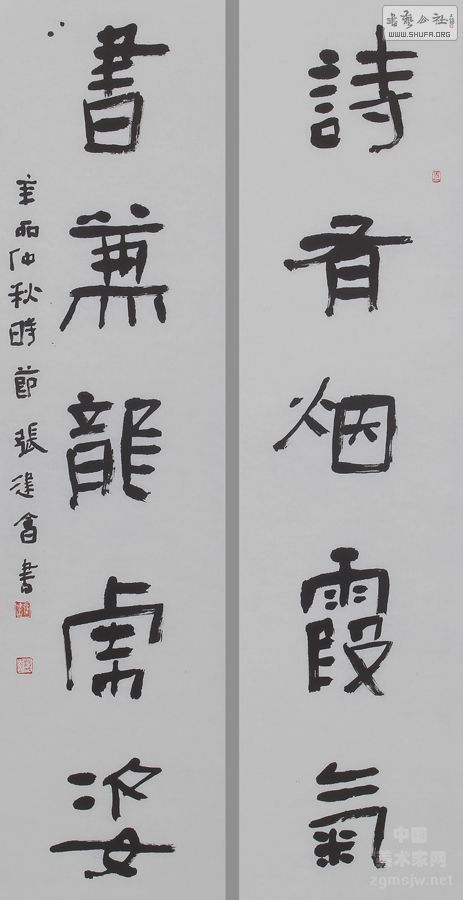 書藝公社
WWW.SHUFA.ORG
詩有烟霞氣
書兼龍虎姿
辛丣仲秋時節張建會書
中国
美术家网
zgmsjw.net